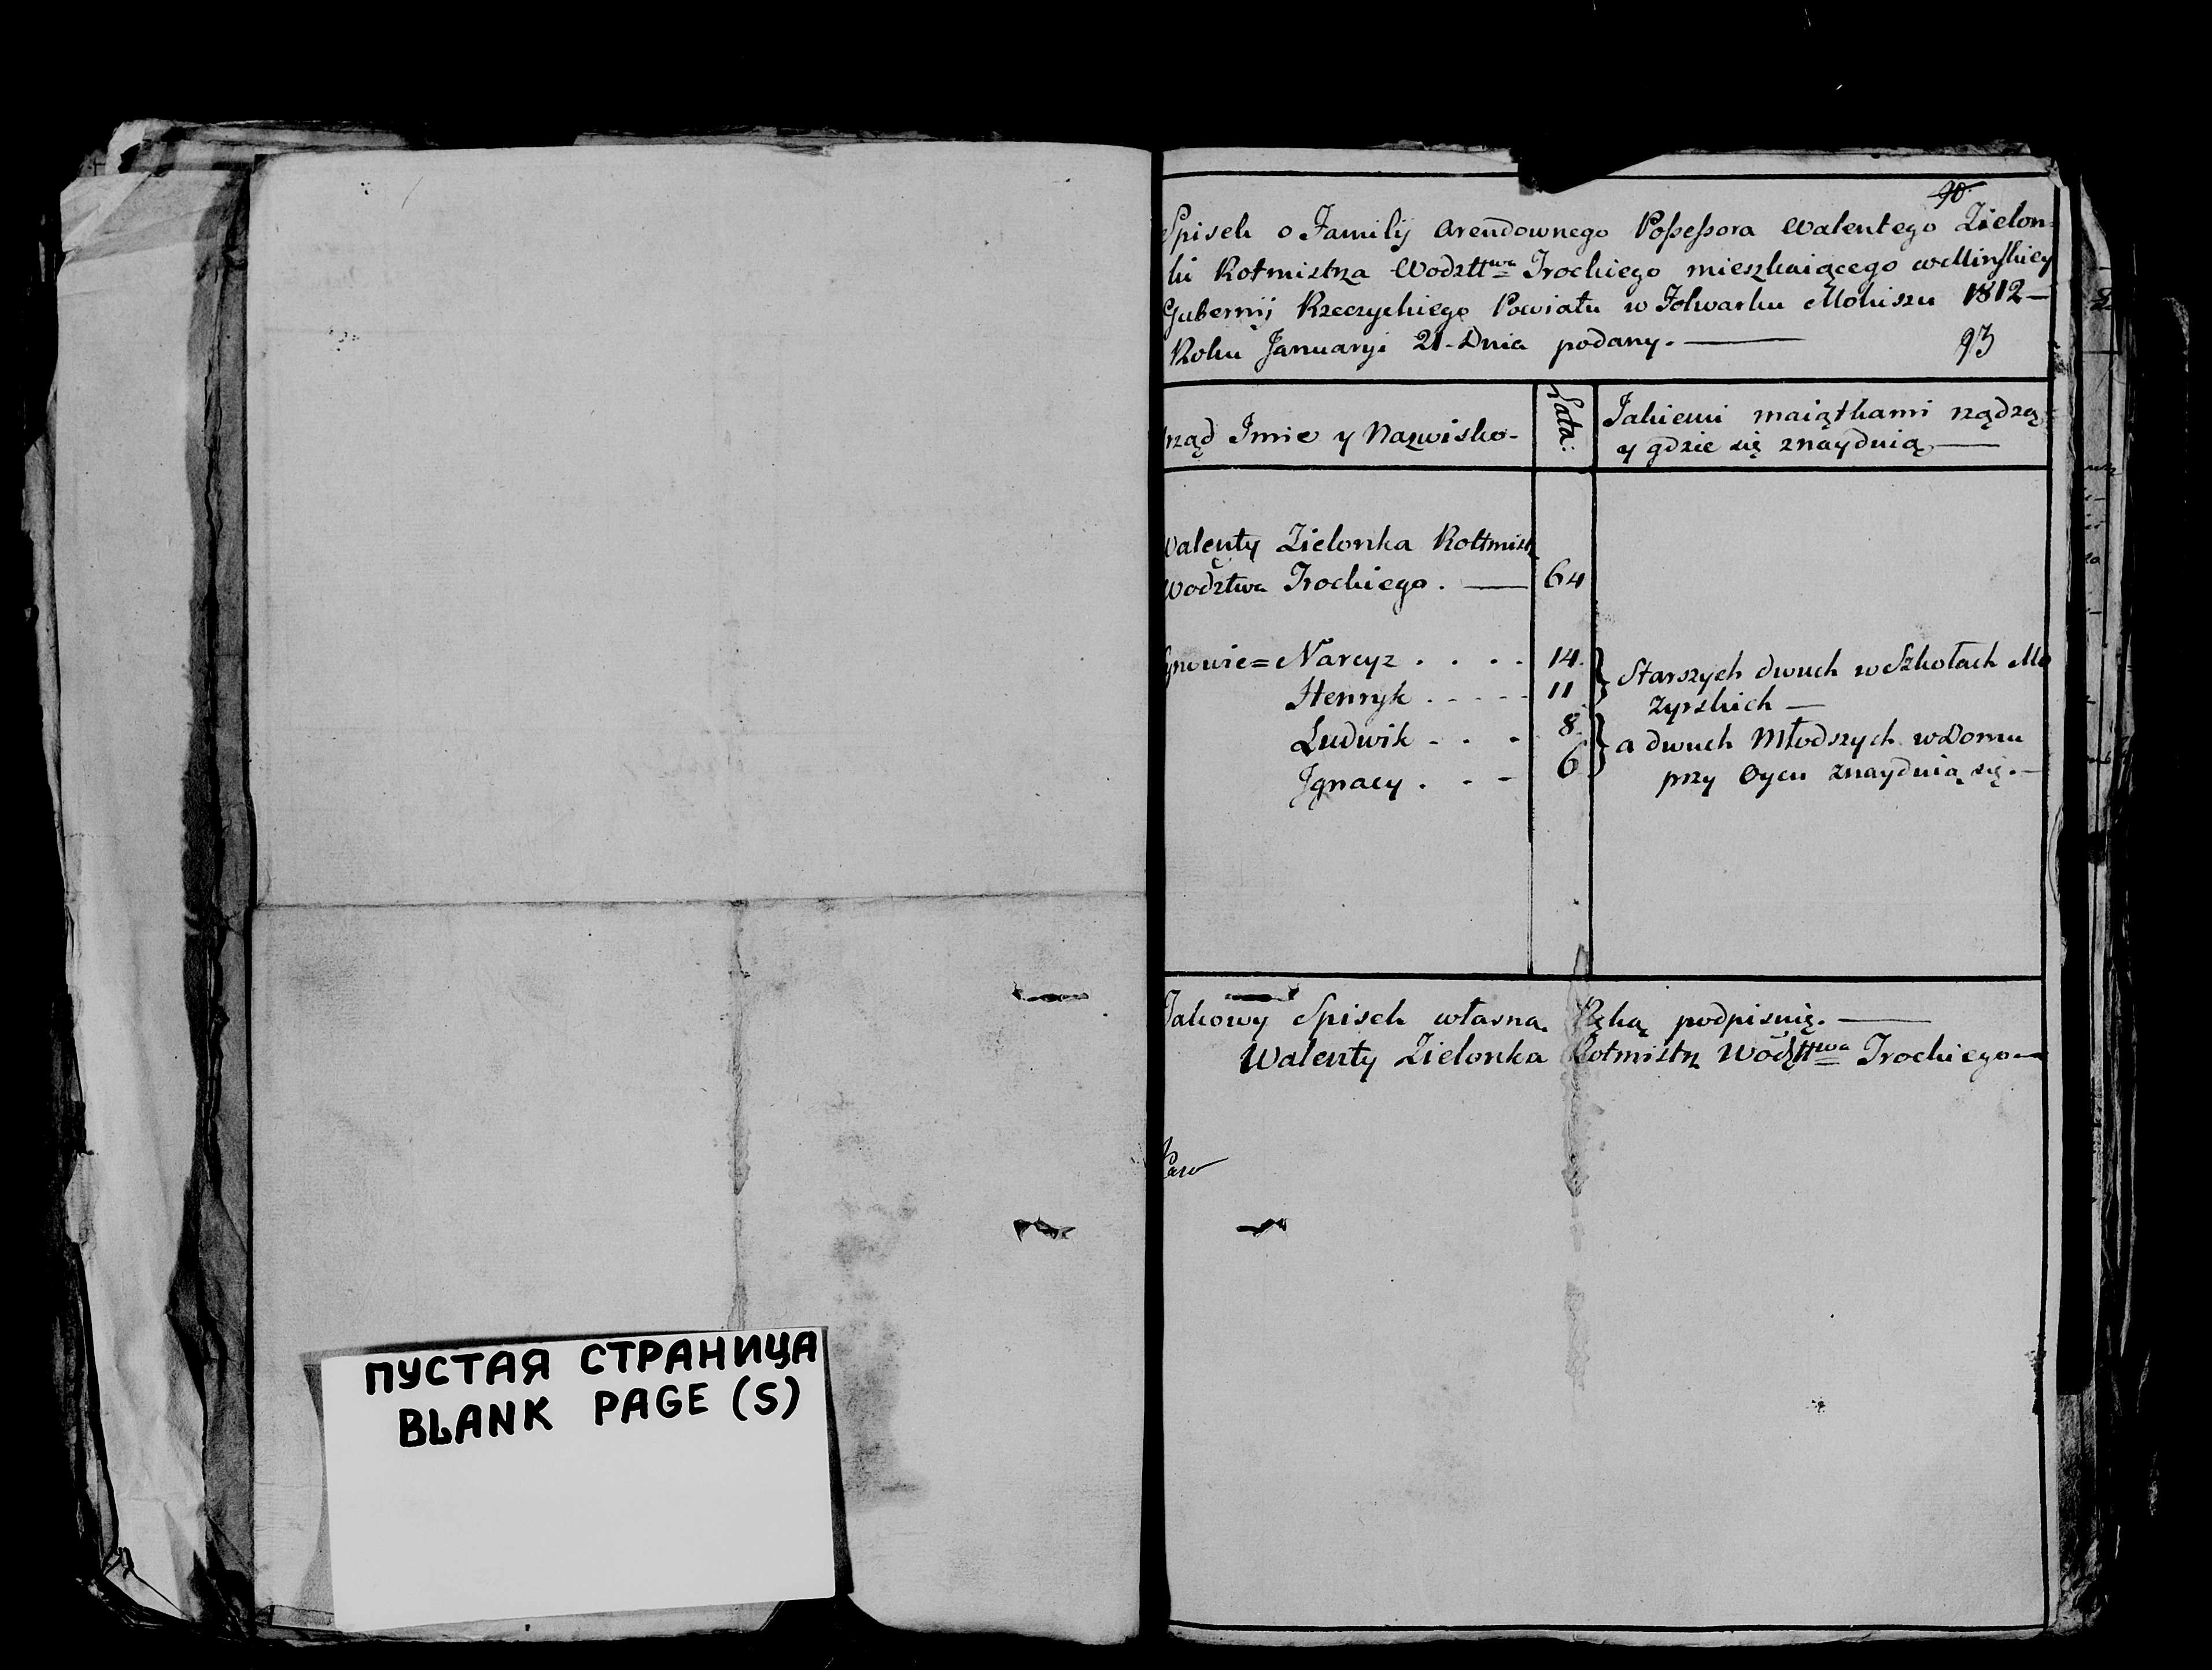 ПУСТАЯ СТРАНИЦА
BLANK PAGE (S)
90.
Spisek o Familij Arendownego Possessora Walentego Zielon-
ki Rotmistrza Wodztt<sup>wa</sup> Trockiego mieszkaiącego w Minskiey
Gubernij Rzeczyckiego Powiatu w Folwarku Mokiszu 1812 —
Roku Januaryi 21. Dnia podany. —
93
rząd Imie y Nazwisko -
Lata:
Jakiemi maiątkami rządzą
y gdzie się znayduią —
Walenty Zielonka Rottmist
Wodztwa Trockiego. — 64
Synowie = Narcyz . . . . 14.
Henryk . - - - - 11
Ludwik - . . - 8.
Ignacy . - - 6
Starszych dwuch w Szkołach Mo
zyrskich —
a dwuch Młodszych w Domu
przy Oycu znayduią się. —
Takowy Spisek własną Ręką podpisuię. —
Walenty Zielonka Rotmistrz Wodztt<sup>wa</sup> Trockiego —